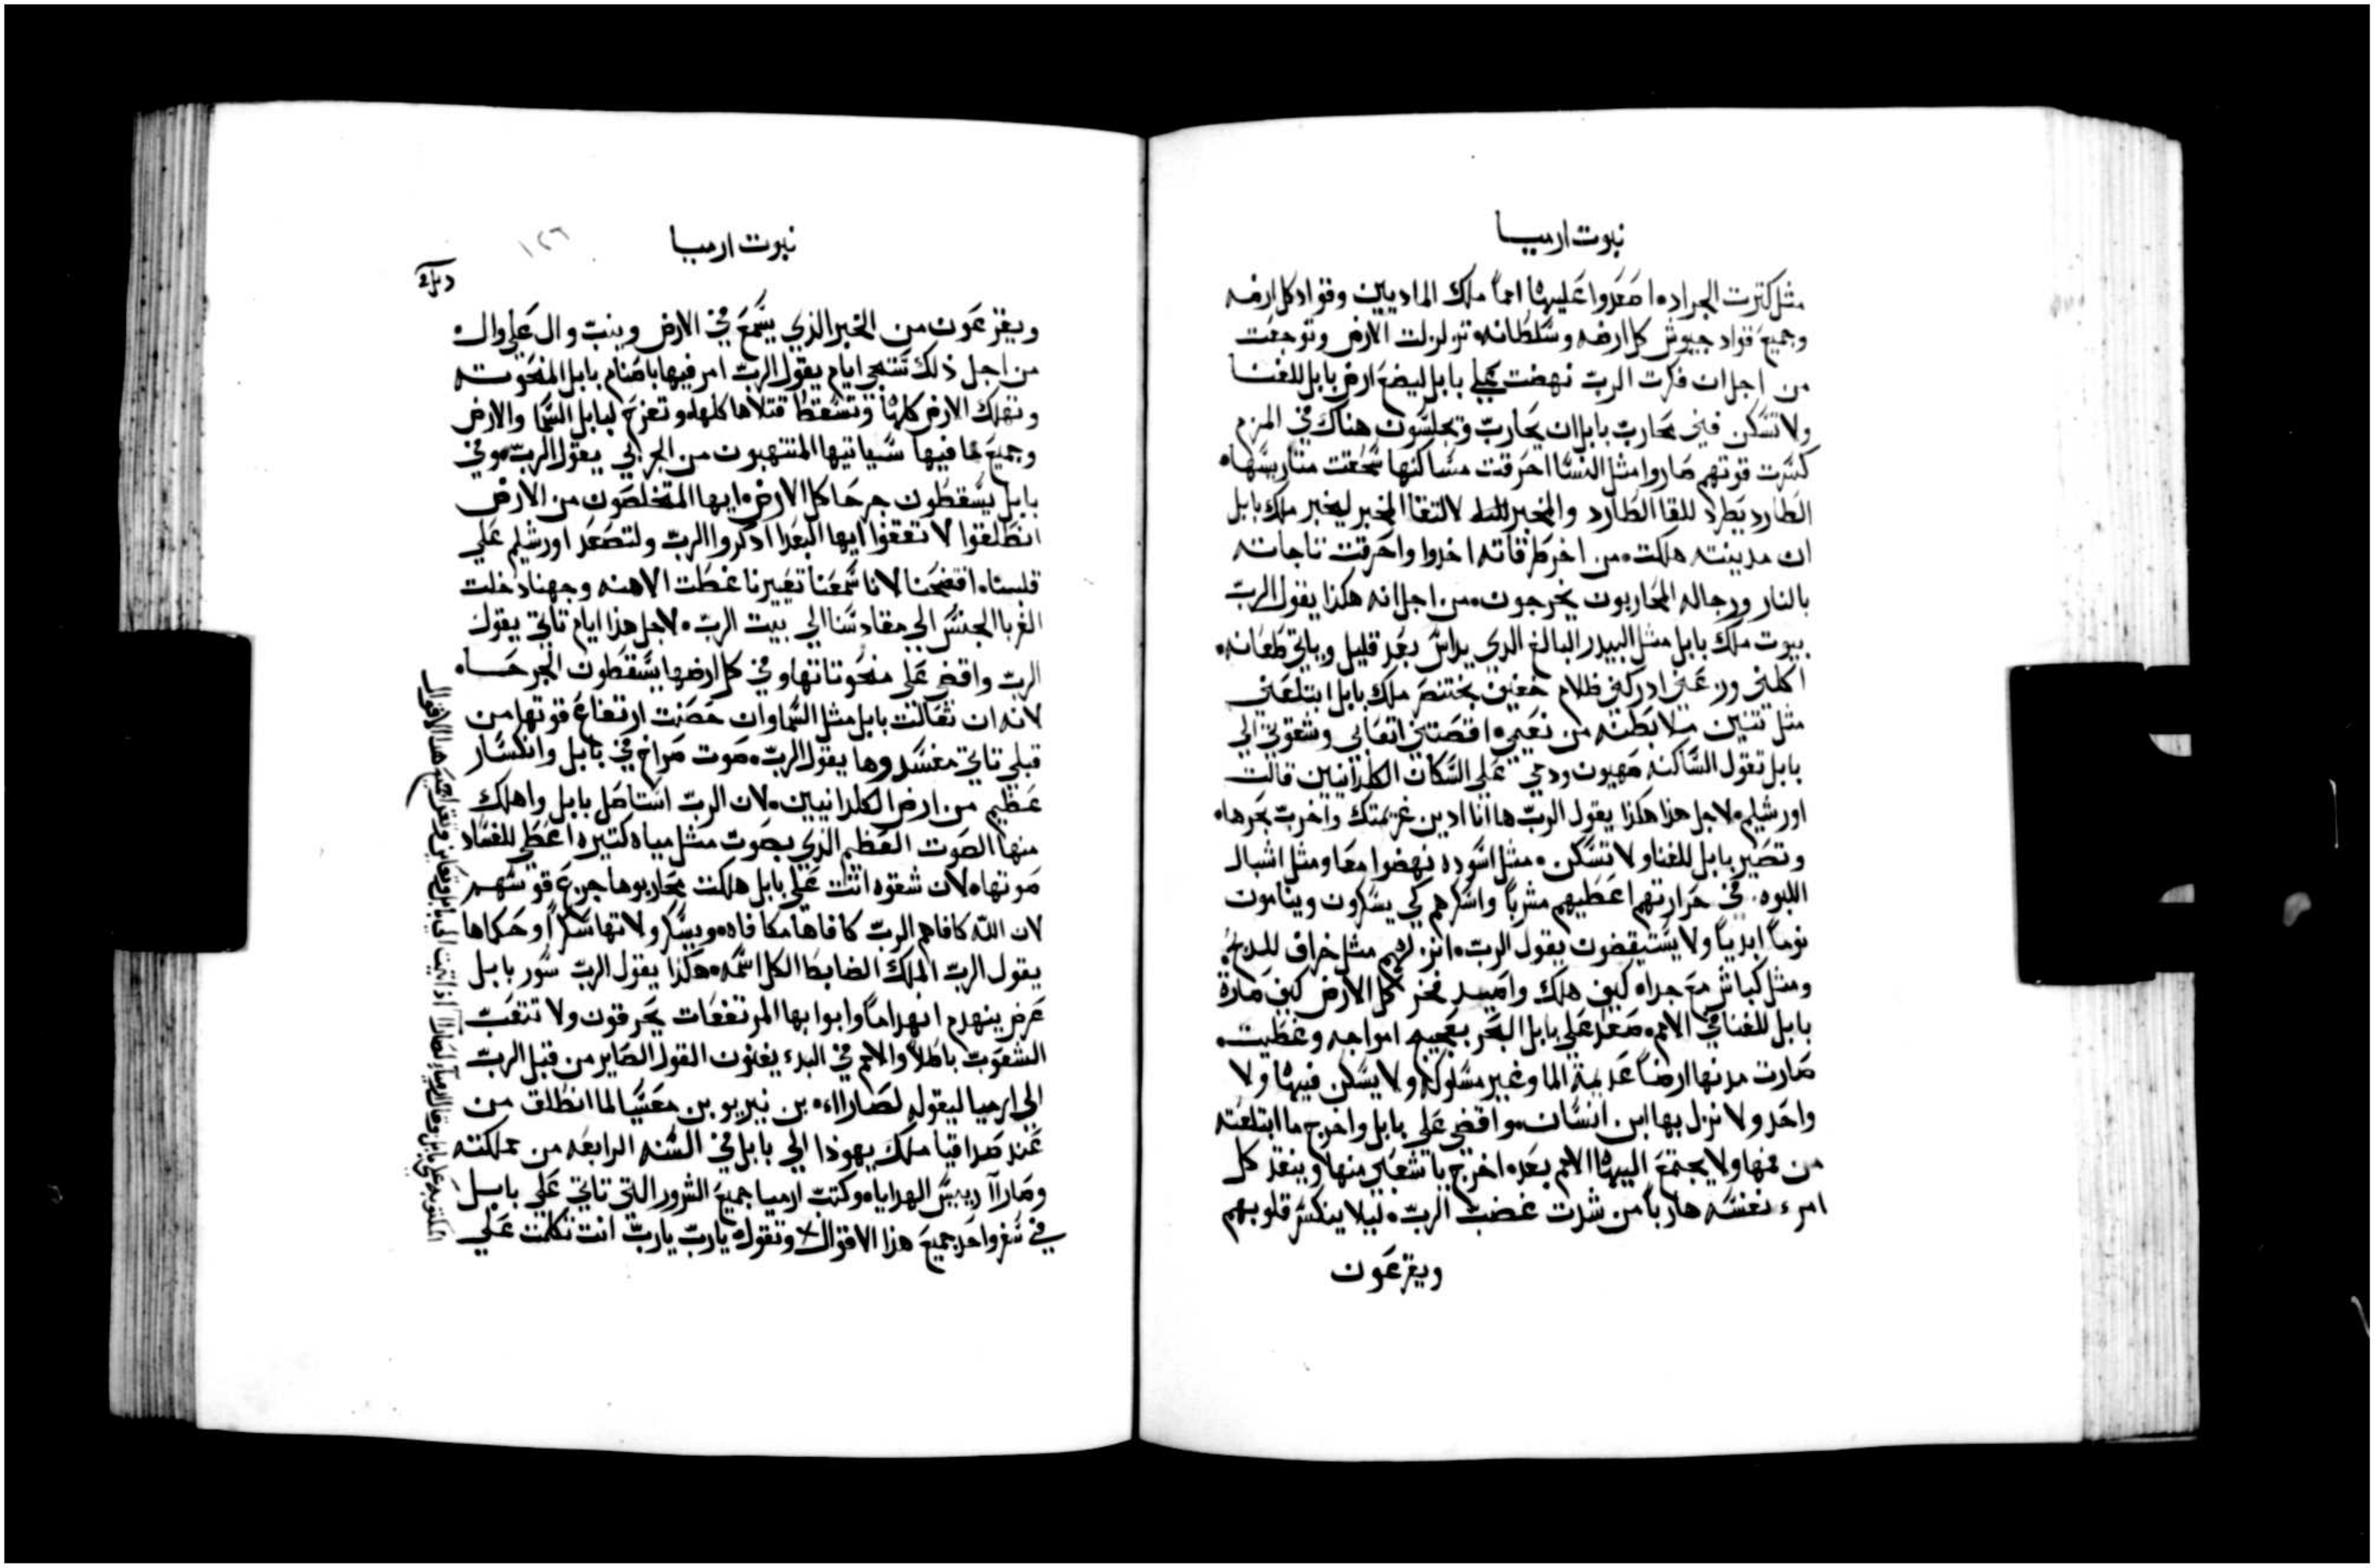 نبوت ارميا
مثل كترت الجراد ه اصعدوا عليها امماً ملك الماديين وقواد كل ارضه
وجميع قواد جيوش كل ارضه وسلطانه ه تزلزلت الارض وتوجعت
من اجل ان فكرت الرب نهضت علي بابل ليضع ارض بابل للفنا
ولا تسكن فيني محارب بابل ان يحارب ويجلسون هناك في المزم
كسرت قوتهم صاروا مثل النسا احرقت مساكنها سحقت متاريسها ه
الطارد يطرد للقا الطارد والمخبر للقا المخبر ليخبر ملك بابل
ان مدينته هلكت ه من اخر طرقاته اخدوا واحرقت تاجاته
بالنار ورجاله المحاربون يخرجون ه من اجل انه هكذا يقول الرب
بيوت ملك بابل مثل البيدر البالغ الدي يداس بعد قليل وياتي طعانه ه
اكلني وزعني ادركني ظلام خفيف بختنصر ملك بابل ابتلعني
مثل تنين ملا بطنه من نعيمي ه اقصتني اتعابي وشقوتي الي
بابل تقول الساكنه صهيون ودمي علي السكان الكلدانيين قالت
اورشليم ه لاجل هذا هكذا يقول الرب ها انا ادين غريمتك واخرب بحرها ه
وتصير بابل للفنا ولا تسكن ه مثل اسوده نهضوا معاً ومثل اشبال
اللبوه ه في حرارتهم اعطيهم مشرباً واسكرهم كي يسكرون وينامون
نوماً ابدياً ولا يستيقضون يقول الرب ه انزلهم مثل خراف للدبح
ومثل كباش مع جداه كيف هلك وامسد فخر كل الارض كيف صارة
بابل للفنا في الامم ه صعد علي بابل البحر بعجيج امواجه وغطيت ه
صارت مدنها ارضاً عديمة الما وغير مسلوكه ولا يسكن فيها ولا
واحد ولا نزل بها ابن انسان ه واقضي علي بابل واخرج ما ابتلعته
من فمها ولا يجتمع اليها الامم بعد ه اخرج يا شعبي منها وينقد كل
امرء نفسه هارباً من شدت غضب الرب ه ليلا ينكسر قلوبهم
ويفزعون
نبوت ارميا
١٢٦
ويفزعون من الخبر الذي يسمع في الارض وينبت وال علي وال
من اجل ذلك ستجي ايام يقول الرب امر فيها باصنام بابل المنحوته
وتهلك الارض كلها وتسقط قتلاها كلها ه وتعزج لبابل السما والارض
وجميع ما فيها سياتيها المنتهبون من الجربي يقول الرب ه وفي
بابل يسقطون جرحا كل الارض ه ايها المتخلصون من الارض
انطلقوا لا تقفوا ايها البعدا ادكروا الرب ولتصعد اورشليم علي
قلبنا ه افتضحنا لانا سمعنا تعييرنا غطت الاهنه وجهنا دخلت
الغربا الجنس الي مقادسنا الي بيت الرب ه لاجل هذا ايام تاتي يقول
الرب واقضي علي منحوتاتها وفي كل ارضها يسقطون الجرحا ه
لانه ان تعالت بابل مثل السما وان حصنت ارتفاع قوتها من
قبلي تاتي مفسدوها يقول الرب ه صوت صراخ في بابل وانكسار
عظيم من ارض الكلدانيين ه لان الرب استاصل بابل واهلك
منها الصوت العظيم الذي يصوت مثل مياه كتيره اعطي للفساد
صوتها ه لان شقوه اتت علي بابل هلكت محاربوها جزع قوسهم
لان الله كافاهم الرب كافاها مكافاه ه ويسكر ولاتها سكراً وحكماها
يقول الرب الملك الضابط الكل اسمه ه هكذا يقول الرب سور بابل
عرض ينهدم انهداماً وابوابها المرتفعات يحرقون ولا تتعب
الشعوب باطلاً والامم في البدء يفنون القول الصاير من قبل الرب
الي ارميا ليقوله لصاراا ه بن نيريو بن معسا لما انطلق من
عند صداقيا ملك يهوذا الي بابل في السنه الرابعه من مملكته
وصاراا رييس الهدايا ه وكتب ارميا جميع الشرور التي تاتي علي بابل
في سفر واحد جميع هذا الاقوال وتقول ه يارب يارب انت تكلمت علي
المكتوبه علي بابل وقال ارميا لصاراا اذا اتيت الي بابل وتعاين وتقرا جميع هذا الاقوال